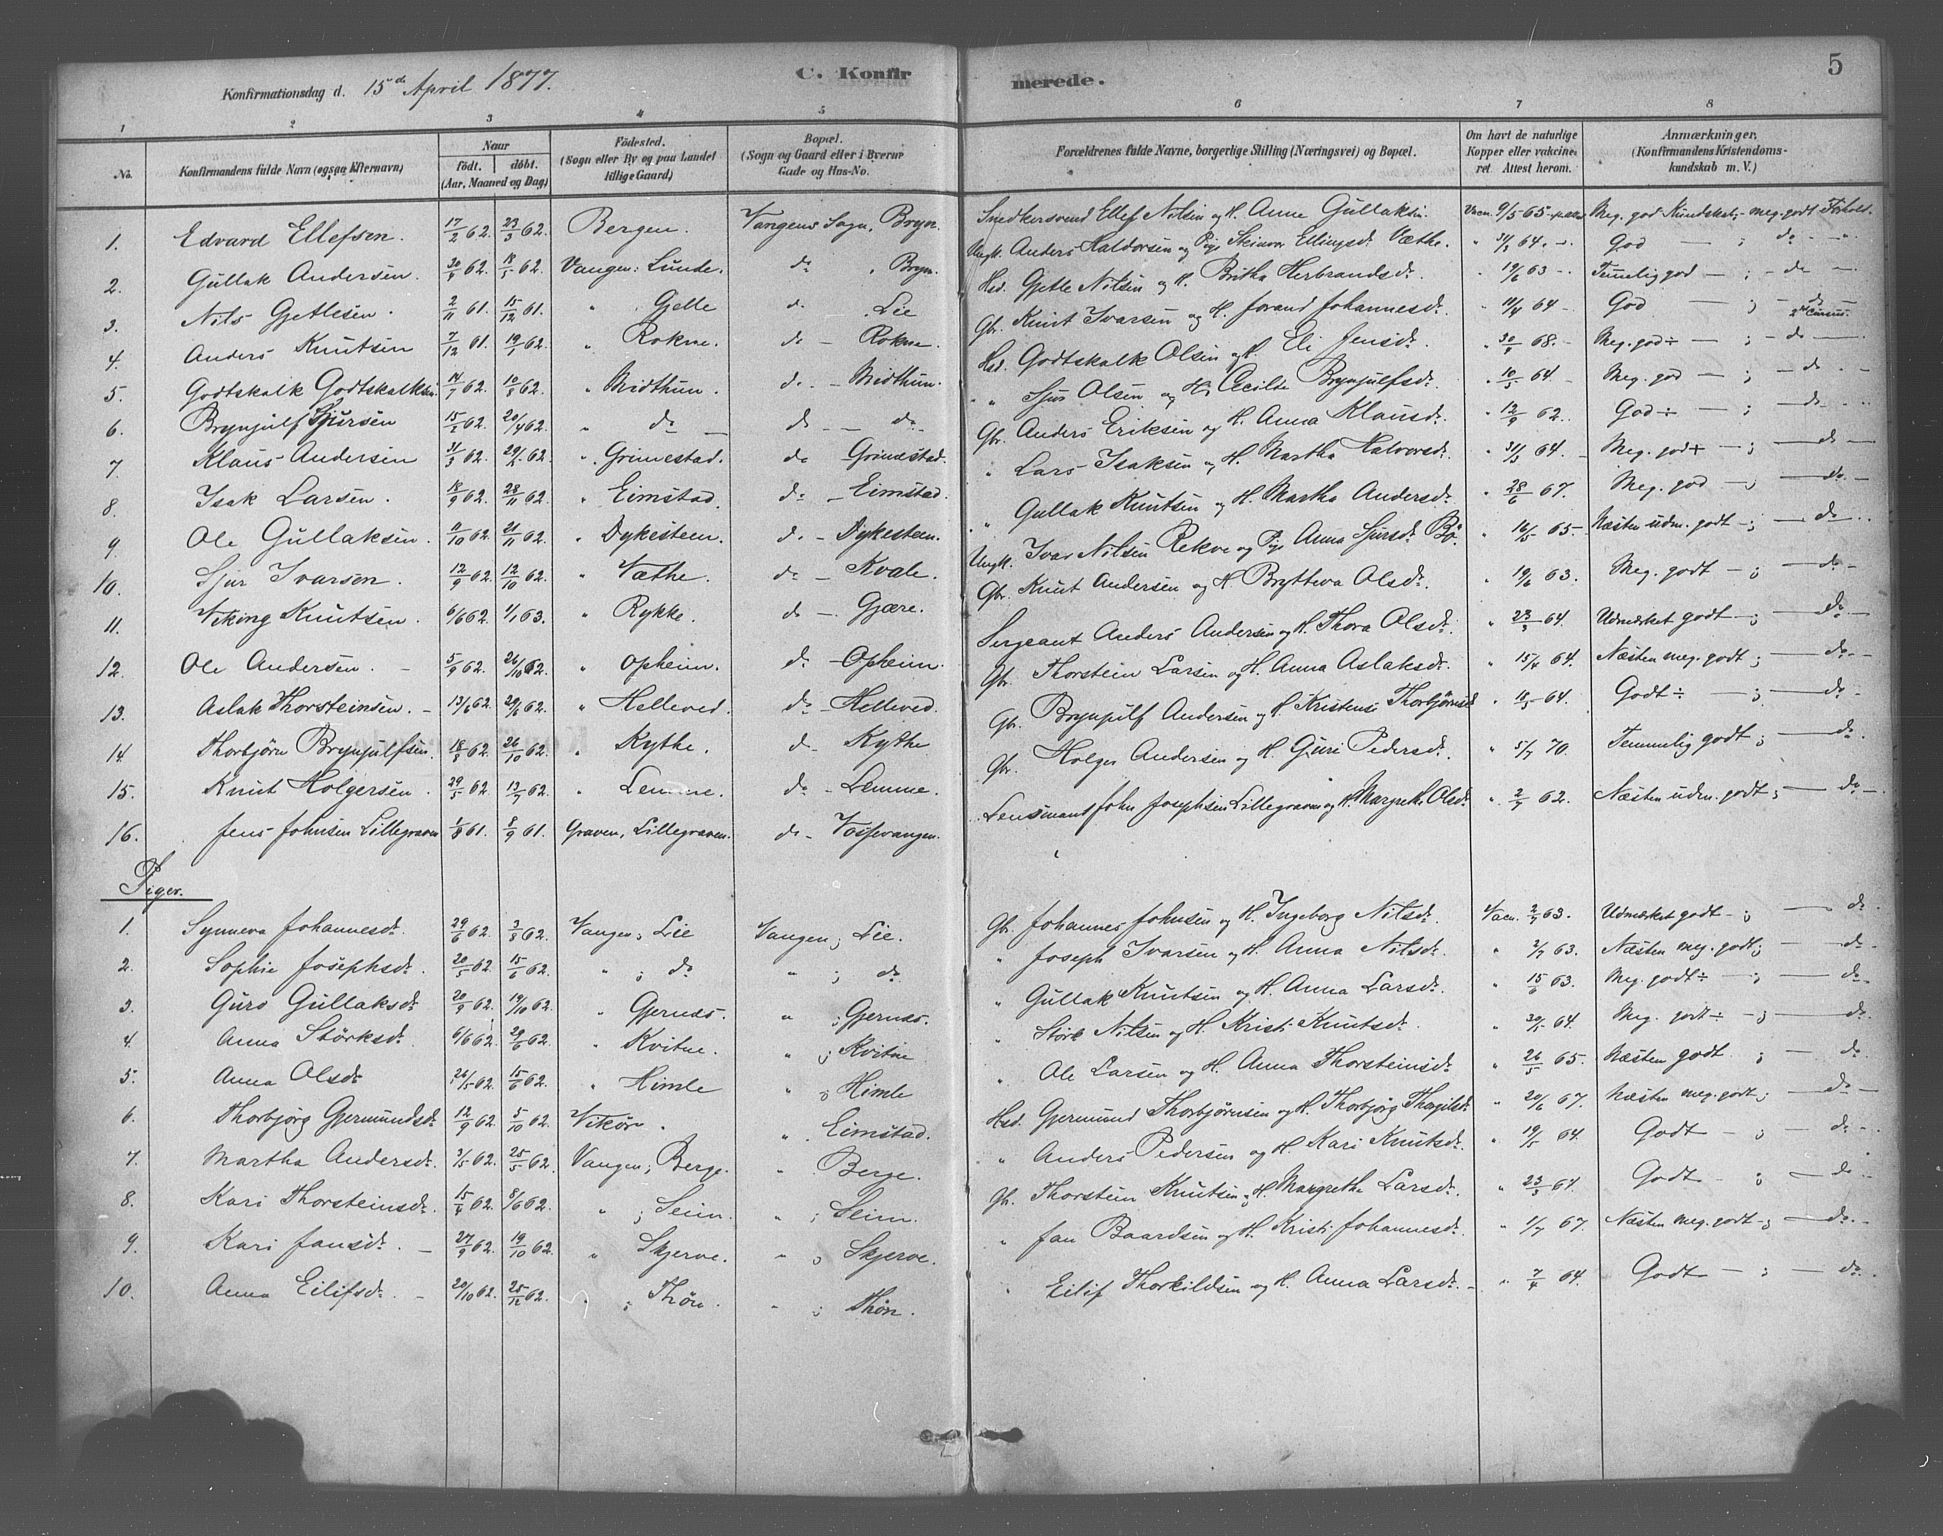 5
Konfirmationsdag d. 15de April 1877. C. Konfirmerede.
1 2 3 4 5 6 7 8
No. Konfirmandens fulde Navn (ogsaa Efternavn) Naar født. døbt. (Aar, Maaned og Dag) Fødested. (Sogn eller By og paa Landet tillige Gaard.) Bopæl. (Sogn og Gaard eller i Byerne Gade og Hus-No. Forældrenes fulde Navne, borgerlige Stilling (Næringsvei) og Bopæl. Om havt de naturlige Kopper eller vaccineret. Attest herom. Anmærkninger. (Konfirmandens Kristendomskundskab m. V.)
1. Edvard Ellefsen. 17/2 62. 23/3 62. Bergen. Vangens Sogn, Bryn. Snedkersvend Ellef Nilsen og H. Anne Gullaksd. Vacn. 9/5 65 Meg. god Kundskab; meg. godt Forhold.
2. Gullak Andersen. 30/4 62. 18/5 62. Vangen: Lunde. do , Bryn. Ungk. Anders Haldorsen og Pige Steinvor Ellingsd. Væthe. " 31/3 64. God — ; do "
3. Nils Gjetlesen. 2/11 61. 15/12 61. " Gjelle do. Lie Hsd. Gjetle Nilsen og H. Britha Herbrandsdr. " 19/6 63 Temmelig god — ; do —
4. Anders Knutsen 7/12 61. 19/1 62. " Rokne. do — Rokne. Gbr. Knut Ivarsen og H. Jorand Johannesdr. " 11/4 64 God — ; do — 2det Cursus.
5. Godtskalk Godtskalksen 14/7 62. 10/8 62. " Midthun. do — Midthun. Hsd. Godtskalk Olsen og H. Eli Jensdr. " 30/8 68. Meg. god÷ — ; do —
6. Brynjulf Sjursen 15/2 62. 20/4 62. " do — do — do " " Sjur Olsen og H. Cecilie Brynjulfsdr. " 10/5 64. Meg. god — ; do —
7. Klaus Andersen 31/3 62. 29/5 62. " Grimestad. do Grimestad. Gbr. Anders Eriksen og H. Anna Klausdr. " 12/9 62. God÷ — ; do —
8. Isak Larsen. 18/9 62. 28/11 62. " Eimstad. do — Eimstad. " Lars Isaksen og H. Martha Halvorsdr. " 31/3 64. Meg. god÷ — ; do —
9. Ole Gullaksen. 11/10 62. 21/11 62. " Dykesteen. do — Dykesteen. " Gullak Knutsen og H. Martha Andersdr. " 28/6 67. Meg. god — ; do —
10. Sjur Ivarsen. 12/9 62. 12/10 62. " Væthe. do — Kvale. Ungk. Ivar Nilsen Rekve og Pige Anna Sjursdr. Bø. " 16/5 65. Næsten udm. godt ; do —
11. Viking Knutsen. 6/6 62. 1/1 63. " Rykke. do — Gjære. Gbr. Knut Andersen og H. Brytteva Olsdr. " 19/6 63. Meg. godt — ; do —
12. Ole Andersen. 5/9 62. 26/10 62. " Opheim. do — Opheim. Sergeant Anders Andersen og H. Thora Olsdr. " 23/3 64. Udmærket godt — ; do —
13. Aslak Thorsteinsen. 13/6 62. 29/6 62. " Helleved. do — Helleved. Gbr. Thorstein Larsen og H. Anna Aslaksdr. " 15/4 64. Næsten meg. godt ; do —
14. Thorbjørn Brynjulfsen. 18/8 62. 26/10 62. " Kythe. do — Kythe Gbr. Brynjulf Andersen og H. Kristensi Thorbjørnsd " 18/5 64. Godt÷ — ; do —
15. Knut Holgersen. 29/5 62. 13/7 62. " Lemme. do — Lemme. Gbr. Holger Andersen og H. Guri Pedersdr. " 5/7 70. Temmelig godt ; do —
16. Jens Johnsen Lillegraven 1/8 61. 8/9 61. Graven, Lillegraven. do — Vossevangen. Lensmand John Josephsen Lillegraven og H. Margrethe Olsdr. " 2/7 62. Næsten udm. godt ; do —
Piger.
1. Synneva Johannesdr. 29/6 62. 3/8 62. Vangen; Lie Vangen; Lie. Gbr. Johannes Johnsen og H. Ingeborg Nilsdr. Vacn. 2/7 63. Udmærket godt — ; do —
2. Sophie Josephsdr. 20/5 62. 15/6 62. " ; do " ; do " Joseph Ivarsen og H. Anna Nilsdr. " 2/7 63. Næsten meg. godt ; do —
3. Guro Gullaksdr. 20/9 62. 19/10 62. " Gjernæs. " ; Gjernæs. " Gullak Knutsen og H. Anna Larsdr. " 15/6 63. Meg. godt÷ — ; do —
4. Anna Størksdr. 6/6 62. 29/6 62. " Kvitne. " ; Kvitne " Størk Nilsen og H. Kristi Knutsdr. " 30/5 64. Meg. godt÷ — ; do —
5. Anna Olsdr. 26/5 62. 15/6 62. " Himle " ; Himle " Ole Larsen og H. Anna Thorsteinsdr. " 26/5 65 Næsten godt ; do —
6. Thorbjørg Gjermundsdr. 12/9 62. 5/10 62. Vikør. " Eimstad. Hsd. Gjermund Thorbjørnsen og H. Thorbjørg Thorgilsdr. " 20/6 67. Næsten meg. godt ; do —
7. Martha Andersdr. 3/5 62. 25/5 62. Vangen; Berge. " Berge. " Anders Pedersen og H. Kari Knutsdr. " 19/5 64. Godt — ; do —
8. Kari Thorsteinsdr. 15/4 62. 8/6 62. " ; Seim. " ; Seim. Gbr. Thorstein Knutsen og H. Margrethe Larsdr. " 23/3 64. Godt — ; do
9. Kari Jansdr. — 27/9 62. 19/10 62. " Skjerve. " ; Skjerve. " Jan Baardsen og H. Kristi Johannesdr. " 1/7 67. Næsten meg. godt — ; do —
10. Anna Eilifsdr. — 20/10 62. 25/12 62. " ; Thøn. " ; Thøn. " Eilif Thorkildsen og H. Anna Larsdr. — " 7/4 64. Godt — ; do —